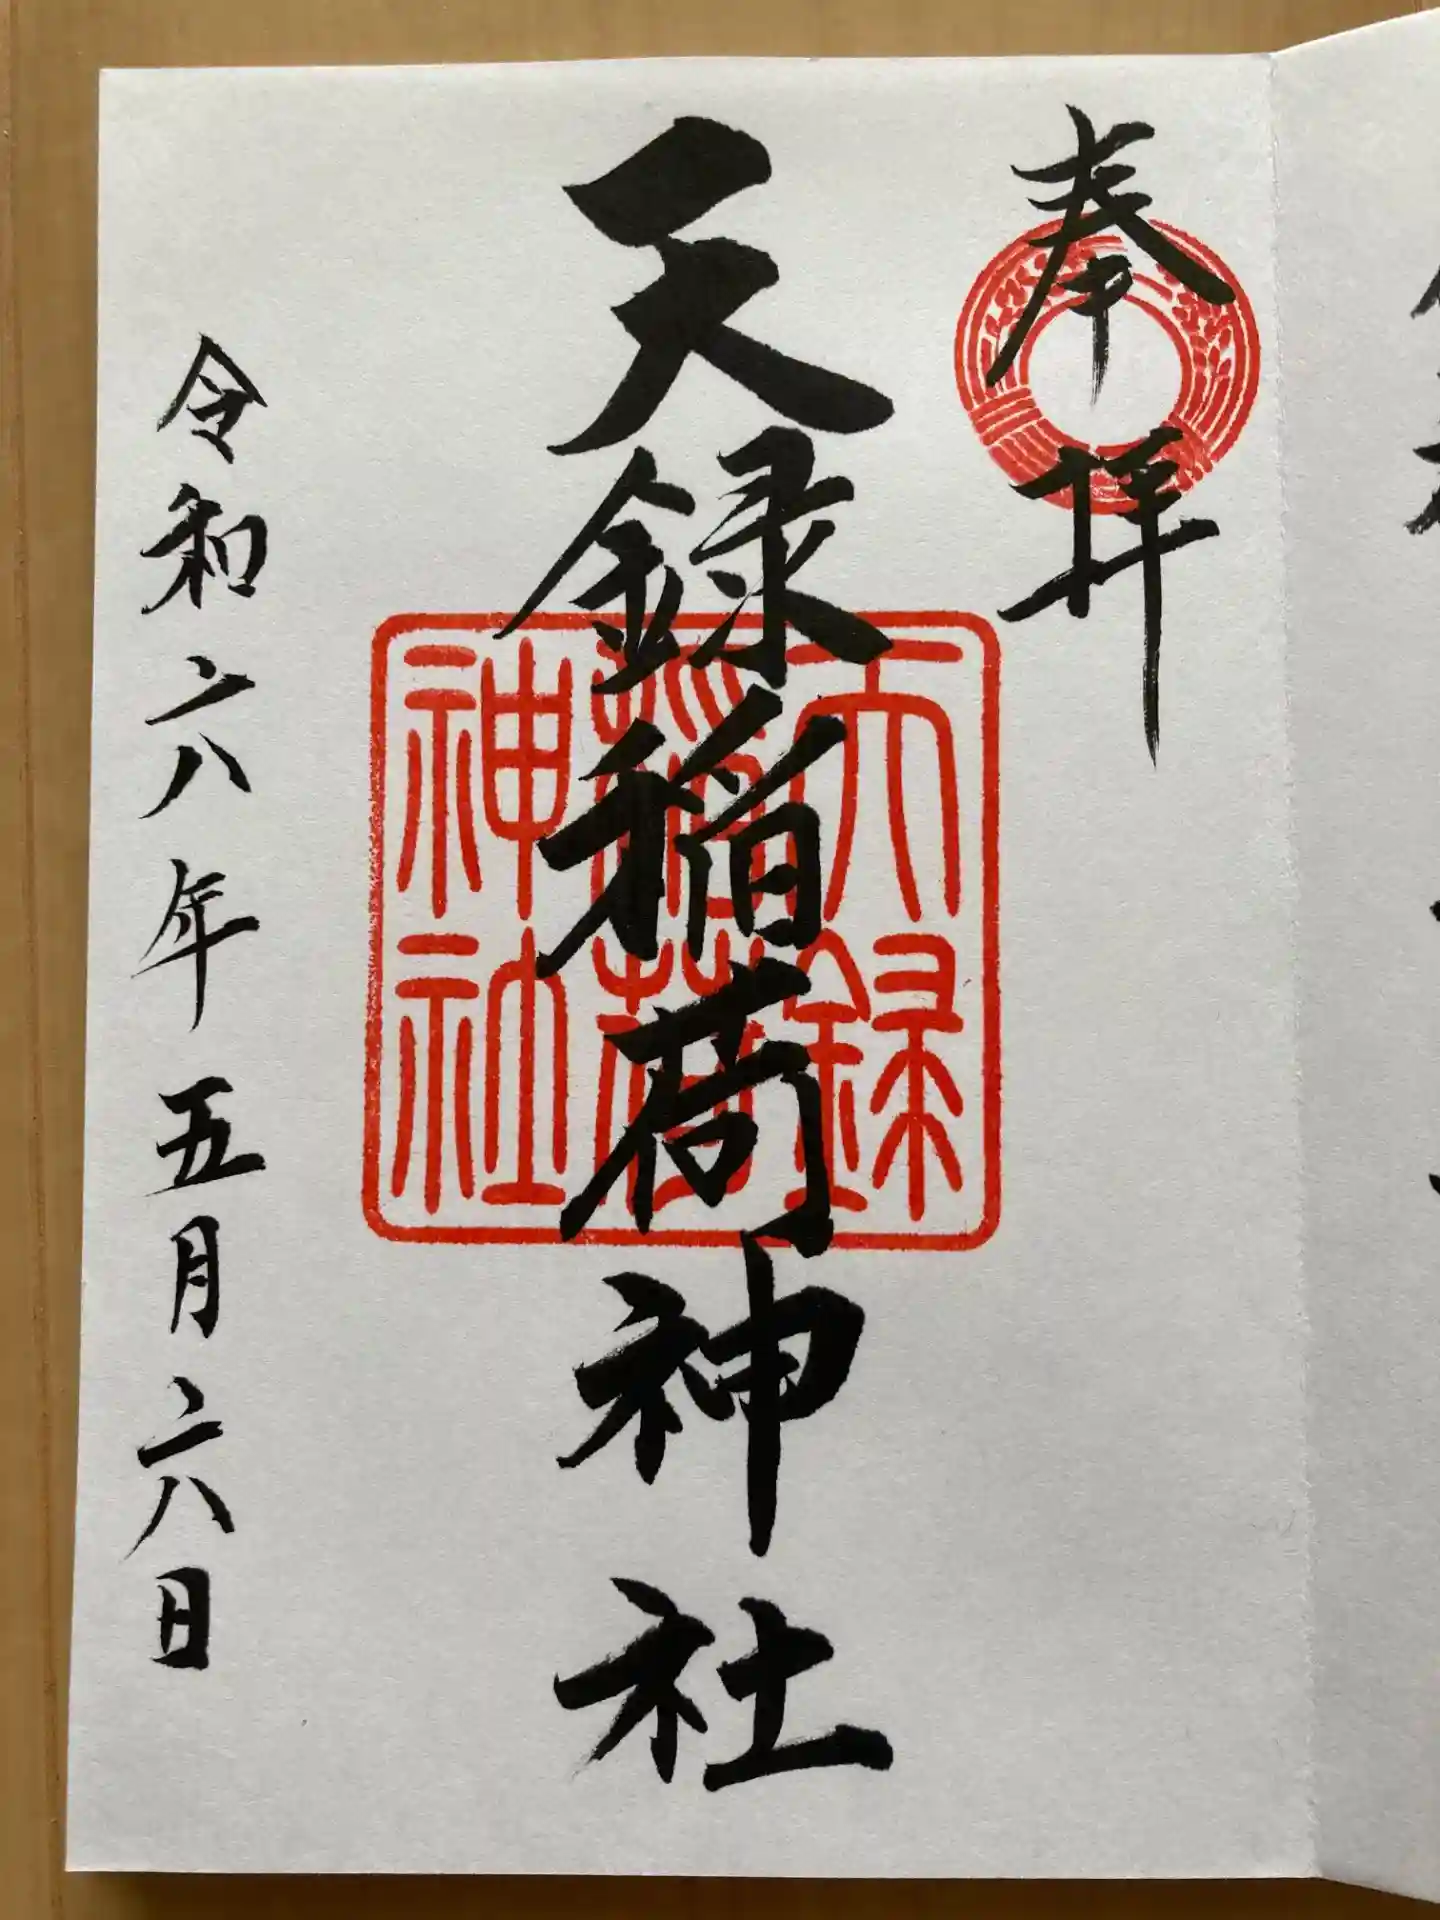 奉拝
天録稲荷神社
天録
稲荷
神社
令和六年五月六日